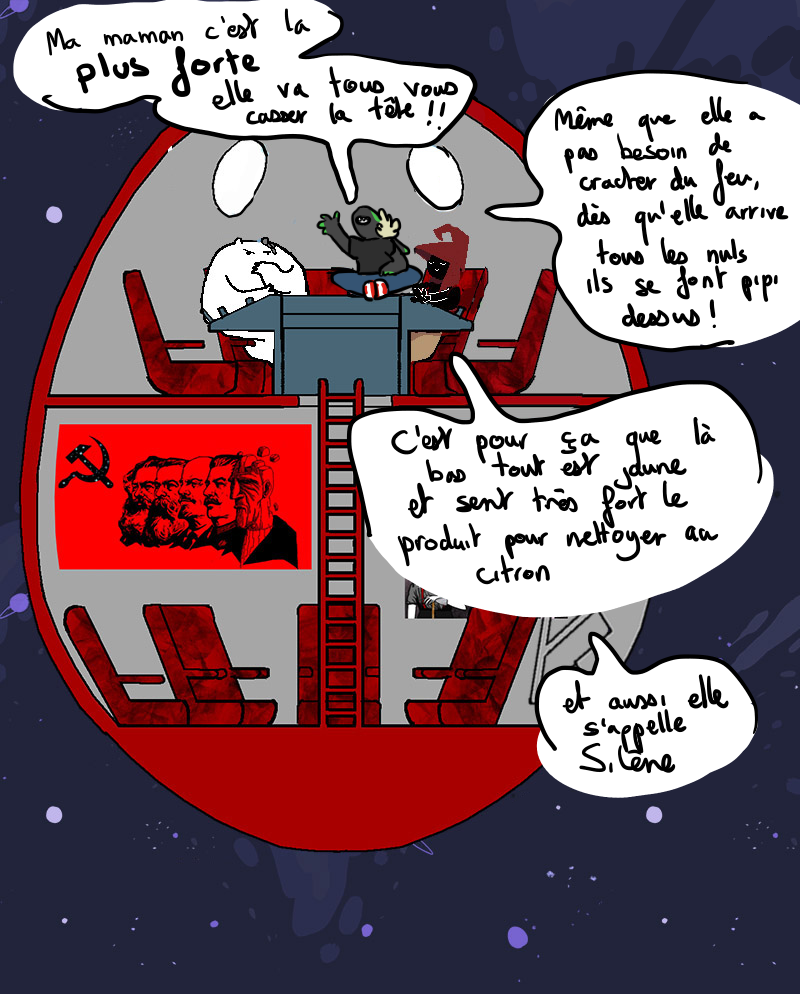 Ma maman c'est la
plus forte
elle va tous vous
casser la tête !!
Même que elle a
pas besoin de
cracher du feu,
dès qu'elle arrive
tous les nuls
ils se font pipi
dessus !
C'est pour ça que là
bas tout est jaune
et sent très fort le
produit pour nettoyer au
citron
et aussi elle
s'appelle
Silène